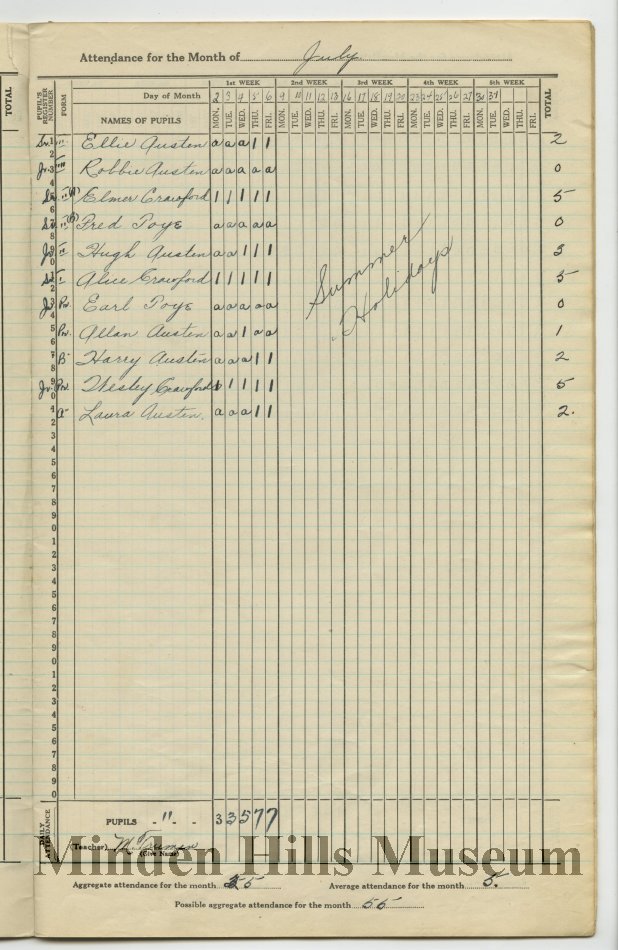 Attendance for the Month of July
TOTAL
PUPIL'S REGISTER NUMBER FORM 1st WEEK 2nd WEEK 3rd WEEK 4th WEEK 5th WEEK TOTAL
Day of Month 2 3 4 5 6 9 10 11 12 13 16 17 18 19 20 23 24 25 26 27 30 31
NAMES OF PUPILS MON. TUE. WED. THU. FRI. MON. TUE. WED. THU. FRI. MON. TUE. WED. THU. FRI. MON. TUE. WED. THU. FRI. MON. TUE. WED. THU. FRI.
Sr. III Ellie Austen a a a 1 1 2
Jr. III Robbie Austen a a a a a 0
Sr. II Elmer Crawford 1 1 1 1 1 5
Sr. II Fred Toye a a a a a 0
Jr. II Hugh Austen a a 1 1 1 3
Sr. I Alice Crawford 1 1 1 1 1 5
Jr. Pr. Earl Toye a a a a a 0
Pr. Allan Austen a a 1 a a 1
B Harry Austen a a a 1 1 2
Jr. Pr. Wesley Crawford 1 1 1 1 5
a Laura Austen. a a a 1 1 2.
Summer
Holidays
DAILY ATTENDANCE
PUPILS - 11 - 3 3 5 7 7
(Teacher) M.
(Give Name)
Minden Hills Museum
Aggregate attendance for the month 25 Average attendance for the month 5.
Possible aggregate attendance for the month 55